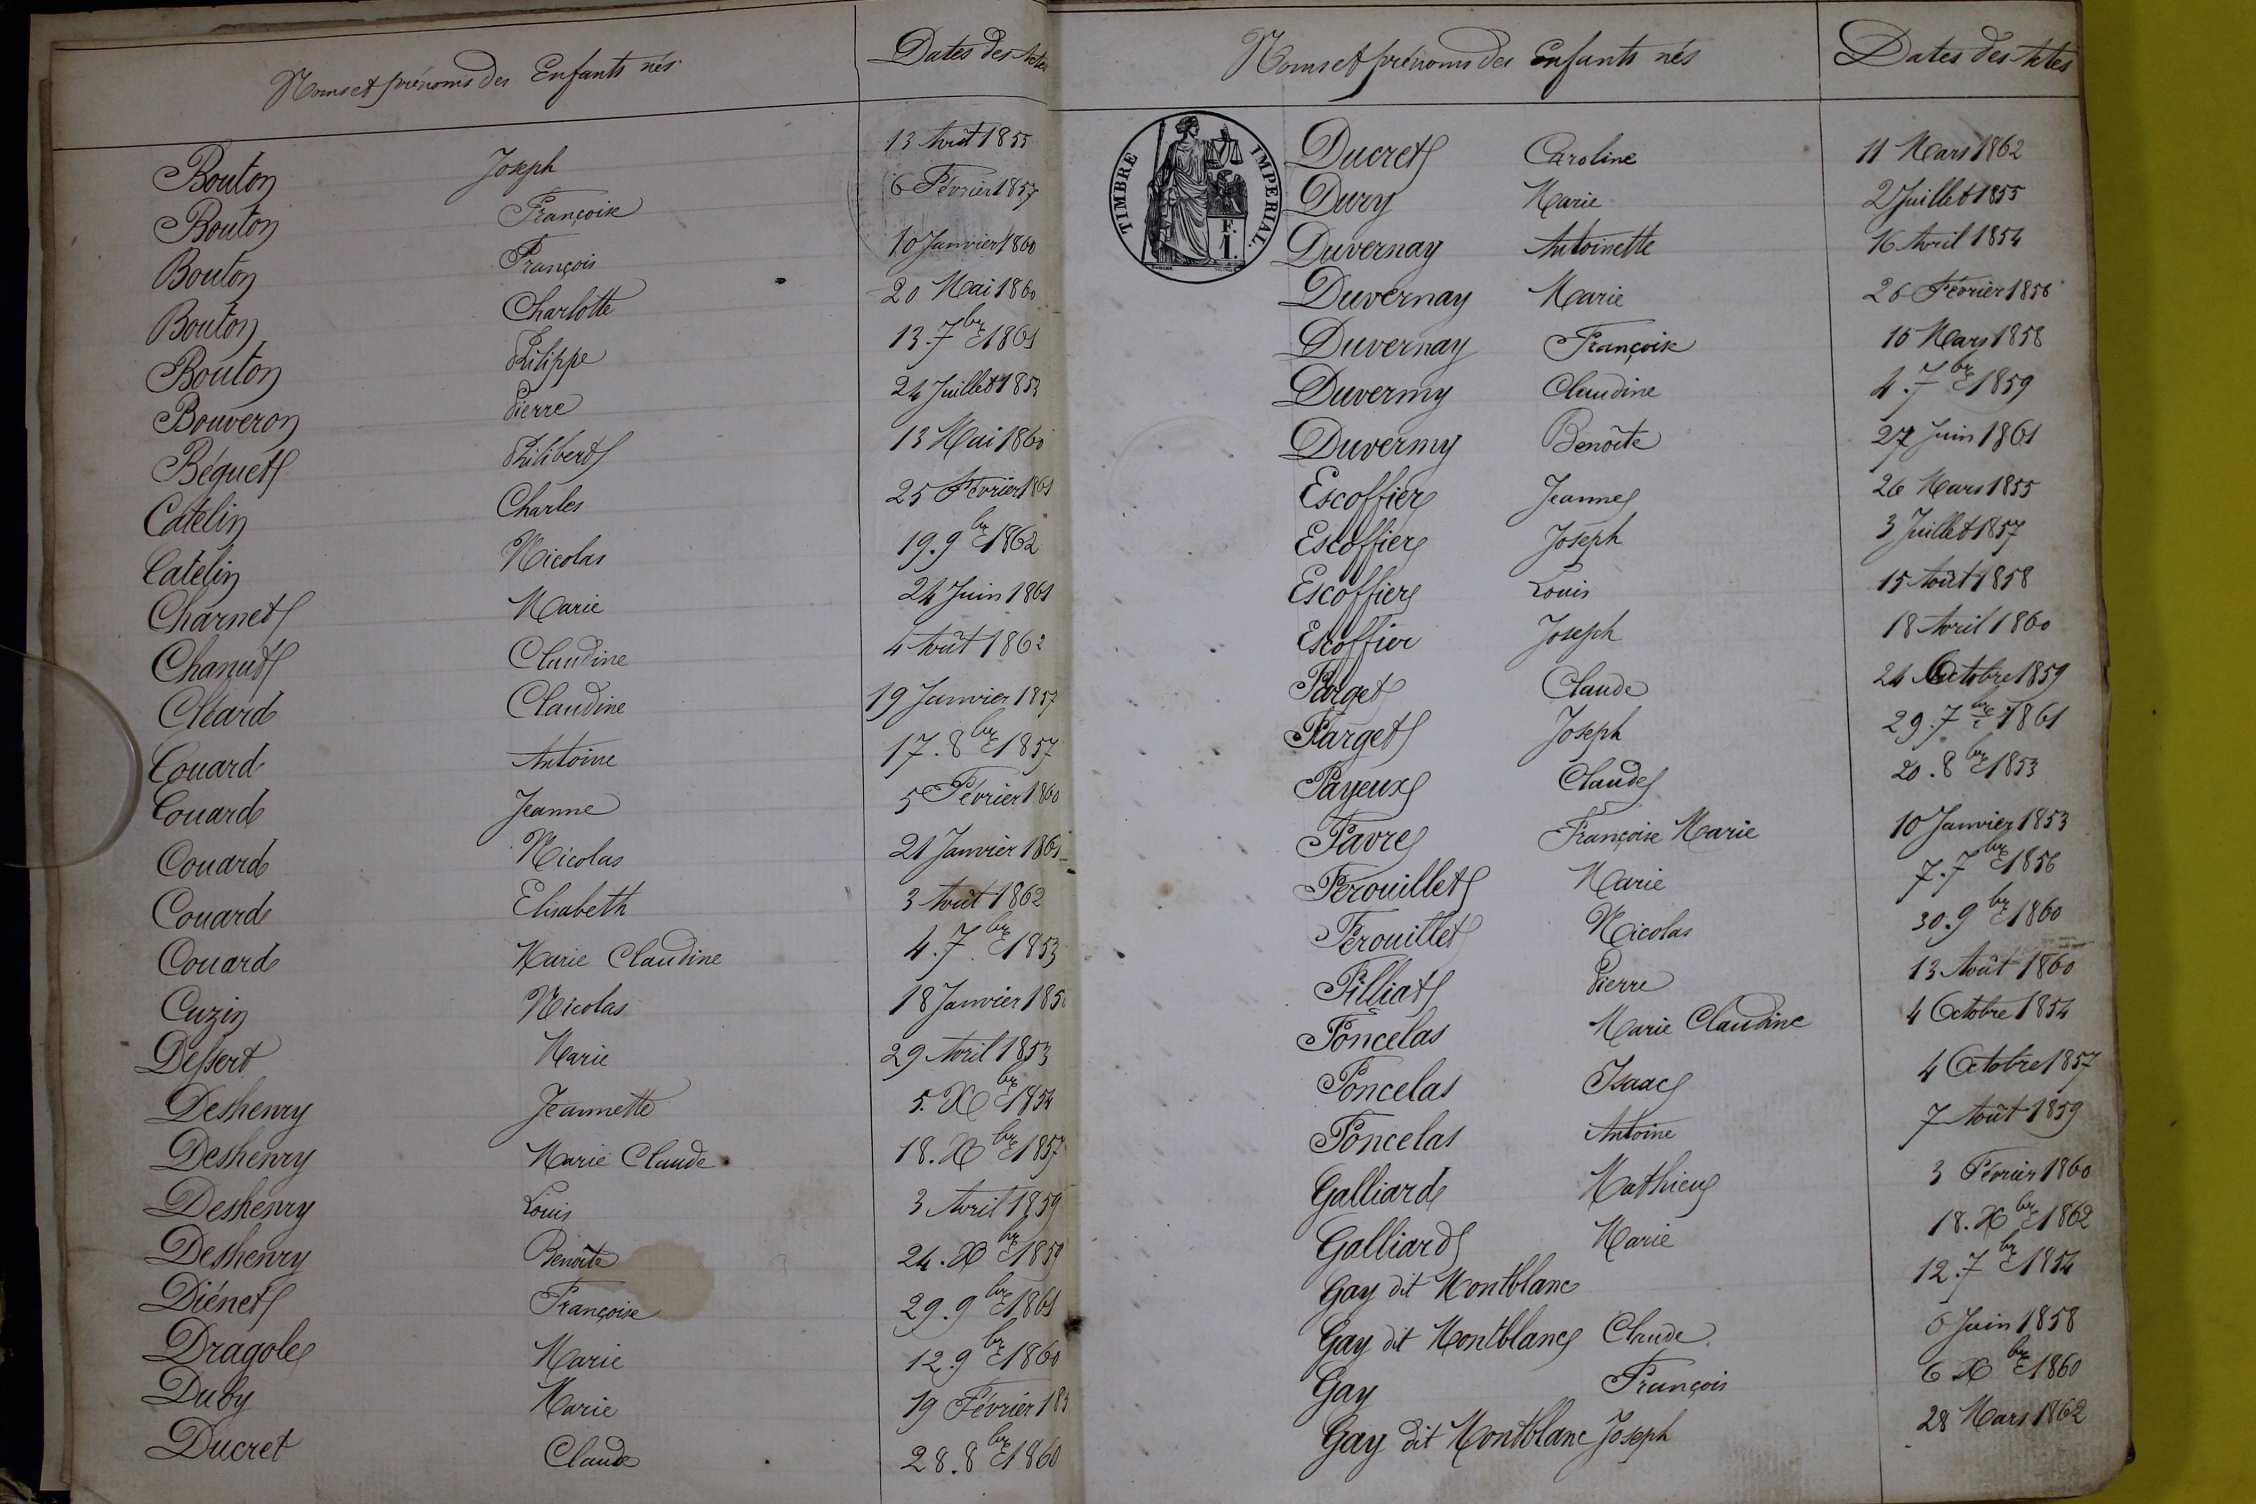 Noms et prénoms des Enfants nés Dates des Actes
Bouton Joseph 13 Août 1855
Bouton Françoise 6 Février 1857
Bouton François 10 Janvier 1860
Bouton Charlotte 20 Mai 1860
Bouton Philippe 13. 7bre 1861
Bouveron Pierre 24 Juillet 1853
Béguet Philibert 13 Mai 1860
Catelin Charles 25 Février 1861
Catelin Nicolas 19. 9bre 1862
Charnet Marie 24 Juin 1861
Chanut Claudine 4 Août 1862
Cléard Claudine 19 Janvier 1857
Couard Antoine 17. 8bre 1857
Couard Jeanne 5 Février 1860
Couard Nicolas 21 Janvier 1861
Couard Elisabeth 3 Août 1862
Couard Marie Claudine 4. 7bre 1853
Cuzin Nicolas 18 Janvier
Dessert Marie 29 Avril 1853
Deshenry Jeannette 5. Xbre 1854
Deshenry Marie Claude 18. Xbre 1857
Deshenry Louis 3 Avril 1859
Deshenry Benoîte 24. Xbre 1859
Diénet Françoise 29. 9bre 1861
Dragole Marie 12. 9bre 1860
Duby Marie 19 Février
Ducret Claude 28. 8bre 1860
Noms et prénoms des Enfants nés Dates des Actes
TIMBRE IMPERIAL.
1. F.
Ducret Caroline 11 Mars 1862
Dury Marie 2 Juillet 1855
Duvernay Antoinette 16 Avril 1854
Duvernay Marie 26 Février 1856
Duvernay Françoise 16 Mars 1858
Duverny Claudine 4. 7bre 1859
Duverny Benoîte 27 Juin 1861
Escoffier Jeanne 26 Mars 1855
Escoffier Joseph 3 Juillet 1857
Escoffier Louis 15 Août 1858
Escoffier Joseph 18 Avril 1860
Farget Claude 24 Octobre 1859
Farget Joseph 29. 7bre 1861
Fayeux Claude 20. 8bre 1853
Favre Françoise Marie 10 Janvier 1853
Férouillet Marie 7. 7bre 1856
Férouillet Nicolas 30. 9bre 1860
Filliat Pierre 13 Août 1860
Foncelas Marie Claudine 4 Octobre 1854
Foncelas Isaac 4 Octobre 1857
Foncelas Antoine 7 Août 1859
Galliard Mathieu 3 Février 1860
Galliard Marie 18. Xbre 1862
Gay dit Montblanc 12. 7bre 1854
Gay dit Montblanc Claude 6 Juin 1858
Gay François 6 Xbre 1860
Gay dit Montblanc Joseph 28 Mars 1862